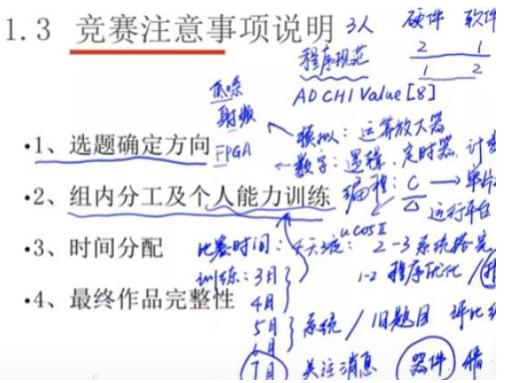 1.3 竞赛注意事项说明 3人 硬件 软件
程序规范 2 1
1 2
低噪 ADCH1Value[8]
射频
模拟：运算放大器
•1、选题确定方向 FPGA 数字：逻辑，定时器，计
•2、组内分工及个人能力训练 编程：C → 单片
运行平台
μCOSⅡ
•3、时间分配 比赛时间：4天3夜：2-3系统搭完
训练：3月 1-2 程序优化/
•4、最终作品完整性 4月
5月 系统/旧题目 评比
6月
7月 关注消息 器件